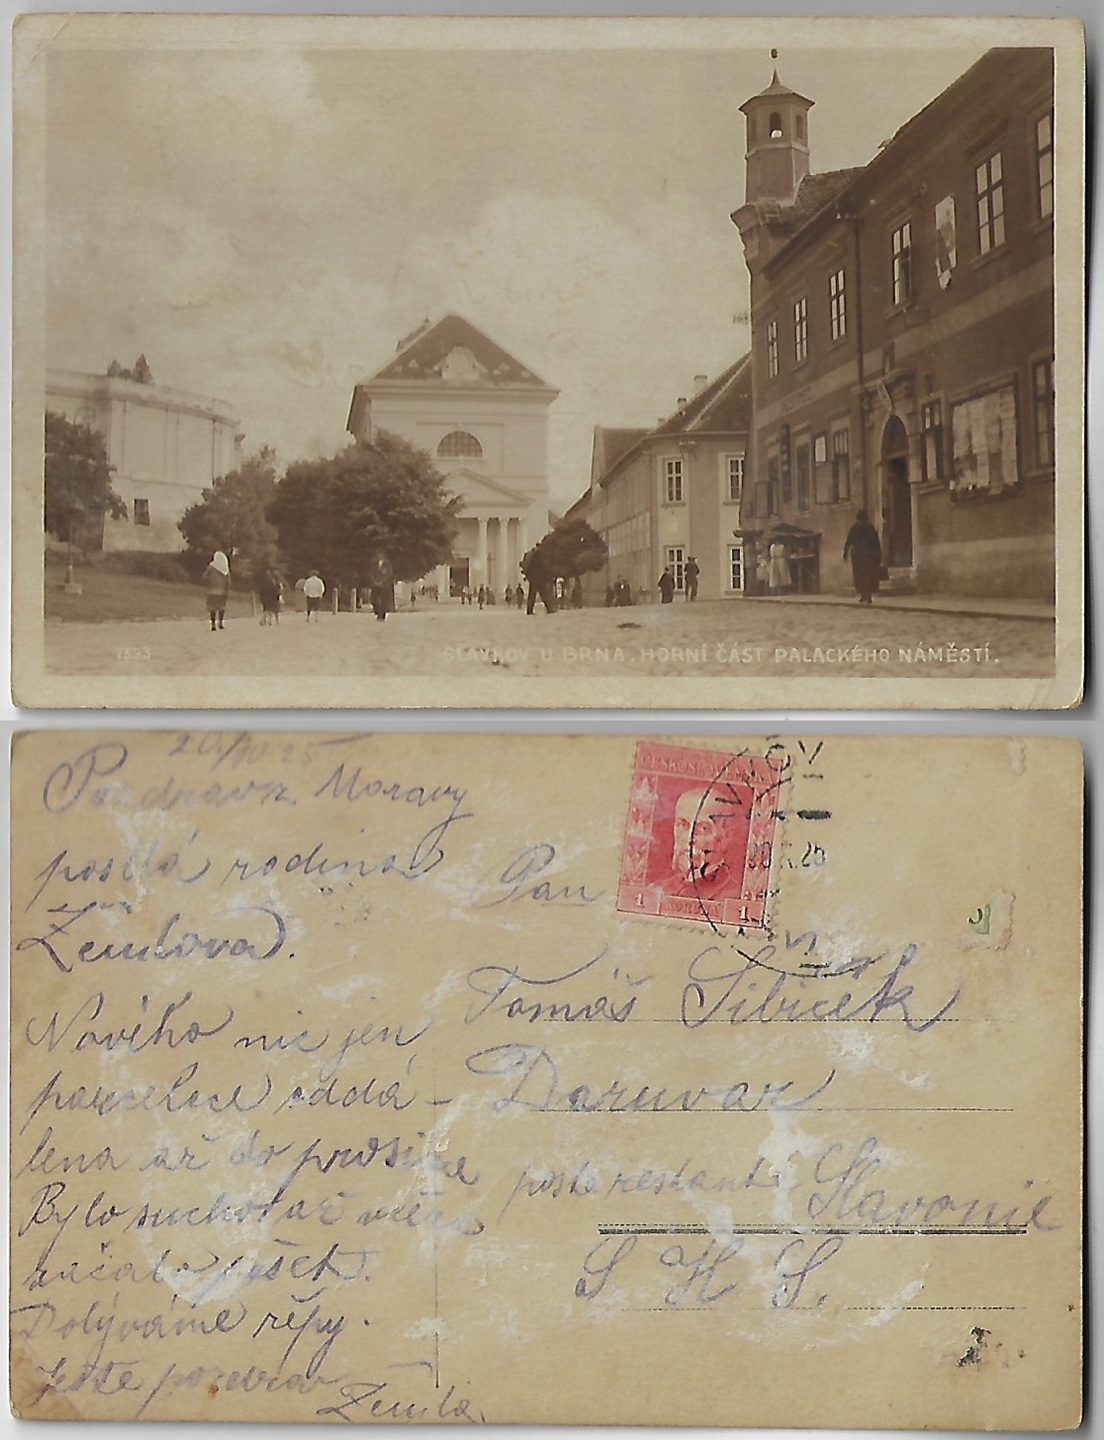 7593
SLAVKOV U BRNA. HORNÍ ČÁST PALACKÉHO NÁMĚSTÍ.
20./10 25
Pozdrav z Moravy
posílá rodina
Zemlova.
Nového nic jen
parcelace oddá-
lena až do prosince
Bylo sucho až včera
začalo pršet.
Dobýváme řepy.
Ještě pozdrav
Zemla.
ČESKOSLOVENSKO
1 KORUNA 1
SLAVKOV
20.X.25
Pan
Tomáš
Daruvar
poste restante Slavonie
S H S.